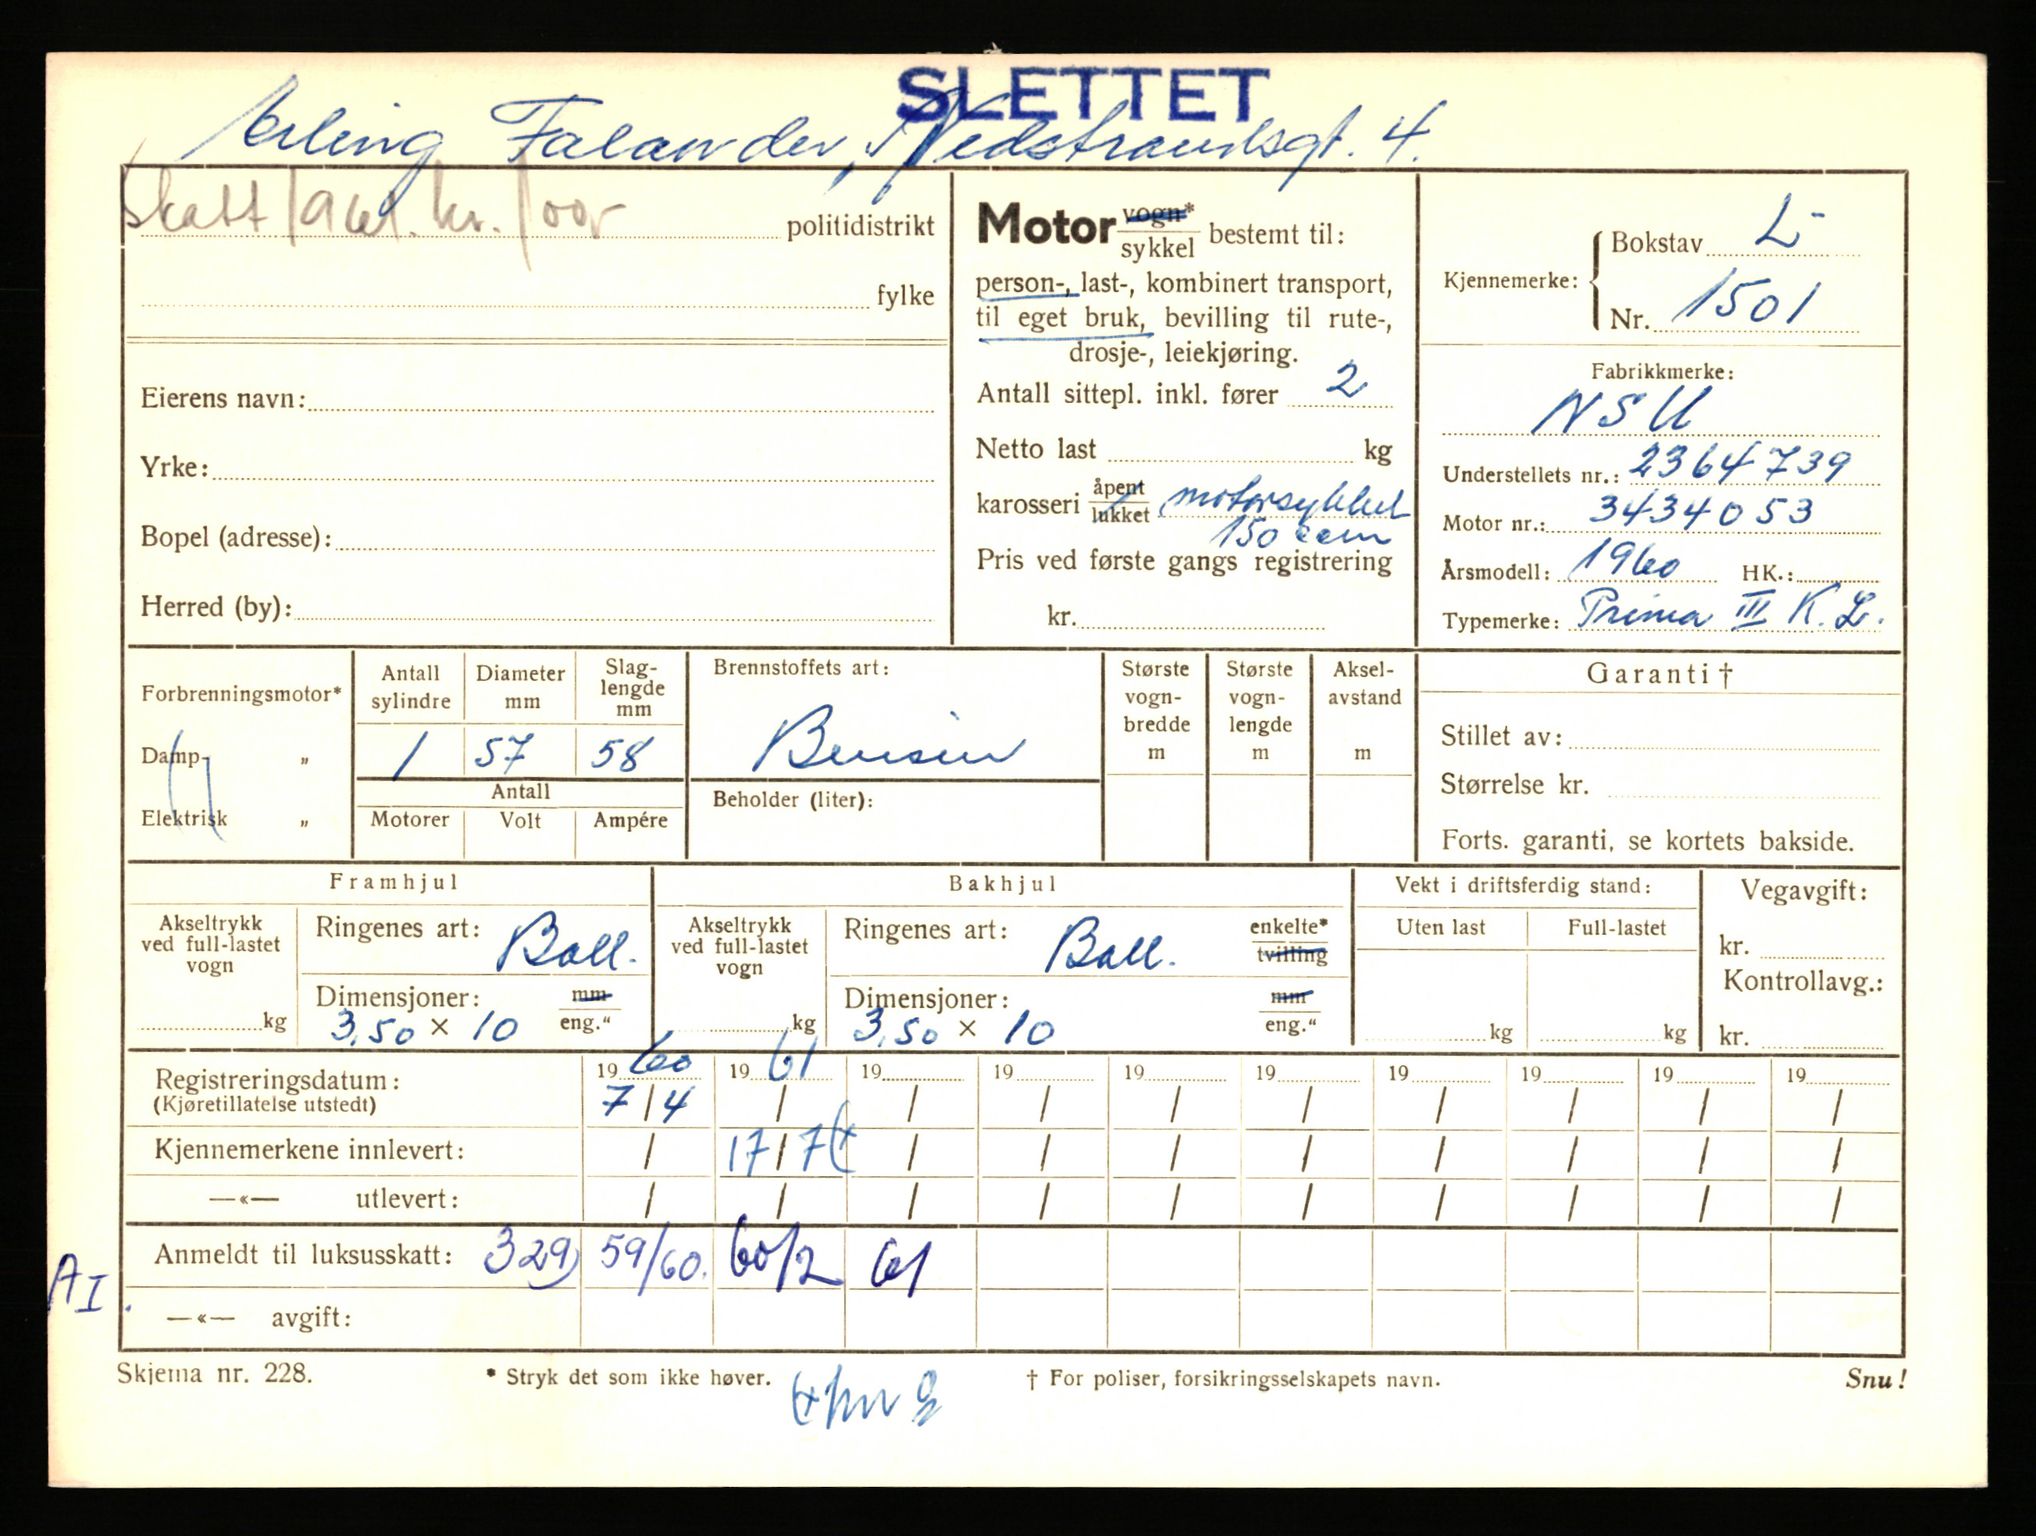 SLETTET
Erling Falander, Nedstrandsgt. 4.
skatt 1961. kr. 100,-
politidistrikt
fylke
Eierens navn:
Yrke:
Bopel (adresse):
Herred (by):
Motor vogn* sykkel bestemt til:
person-, last-, kombinert transport,
til eget bruk, bevilling til rute-,
drosje-, leiekjøring.
Antall sittepl. inkl. fører 2
Netto last kg
karosseri åpent lukket motorsykkel
150 ccm
Pris ved første gangs registrering
kr.
Kjennemerke: Bokstav L-
Nr. 1501
Fabrikkmerke:
NSU
Understellets nr.: 2364739
Motor nr.: 3434053
Årsmodell: 1960 HK.:
Typemerke: Prima III K.L.
Forbrenningsmotor*
Damp- „
Elektrisk „
Antall sylindre Diameter mm Slag-lengde mm
1 57 58
Antall
Motorer Volt Ampére
Brennstoffets art:
Bensin
Beholder (liter):
Største vogn-bredde m
Største vogn-lengde m
Aksel-avstand m
Garanti †
Stillet av:
Størrelse kr.
Forts. garanti, se kortets bakside.
Framhjul
Akseltrykk ved full-lastet vogn
kg
Ringenes art: Ball.
Dimensjoner: mm
3,50 × 10 eng.“
Bakhjul
Akseltrykk ved full-lastet vogn
kg
Ringenes art: Ball. enkelte* tvilling
Dimensjoner: mm
3,50 × 10 eng.“
Vekt i driftsferdig stand:
Uten last Full-lastet
kg kg
Vegavgift:
kr.
Kontrollavg.:
kr.
Registreringsdatum: 1960 1961 19 19 19 19 19 19 19 19
(Kjøretillatelse utstedt) 7/4 / / / / / / / / /
Kjennemerkene innlevert: / 17/7 / / / / / / / /
—«— utlevert: / / / / / / / / / /
Anmeldt til luksusskatt: 329) 59/60. 60/2 61
AI.
—«— avgift:
Skjema nr. 228. * Stryk det som ikke høver. † For poliser, forsikringsselskapets navn. Snu!